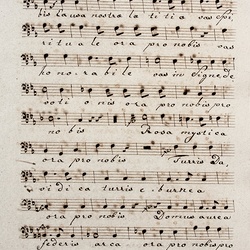 bis causa nostra la ti tia vas Spi
ritu a le ora pro nobis vas
ho no ra bi le vas in Signe de
voti o nis ora pro nobis pro
no bis Rosa mystica
ora pro nobis Turris Da
vi di ca turris e burnea
ora pro nobis Domus aurea
federis arca ora pro nobis